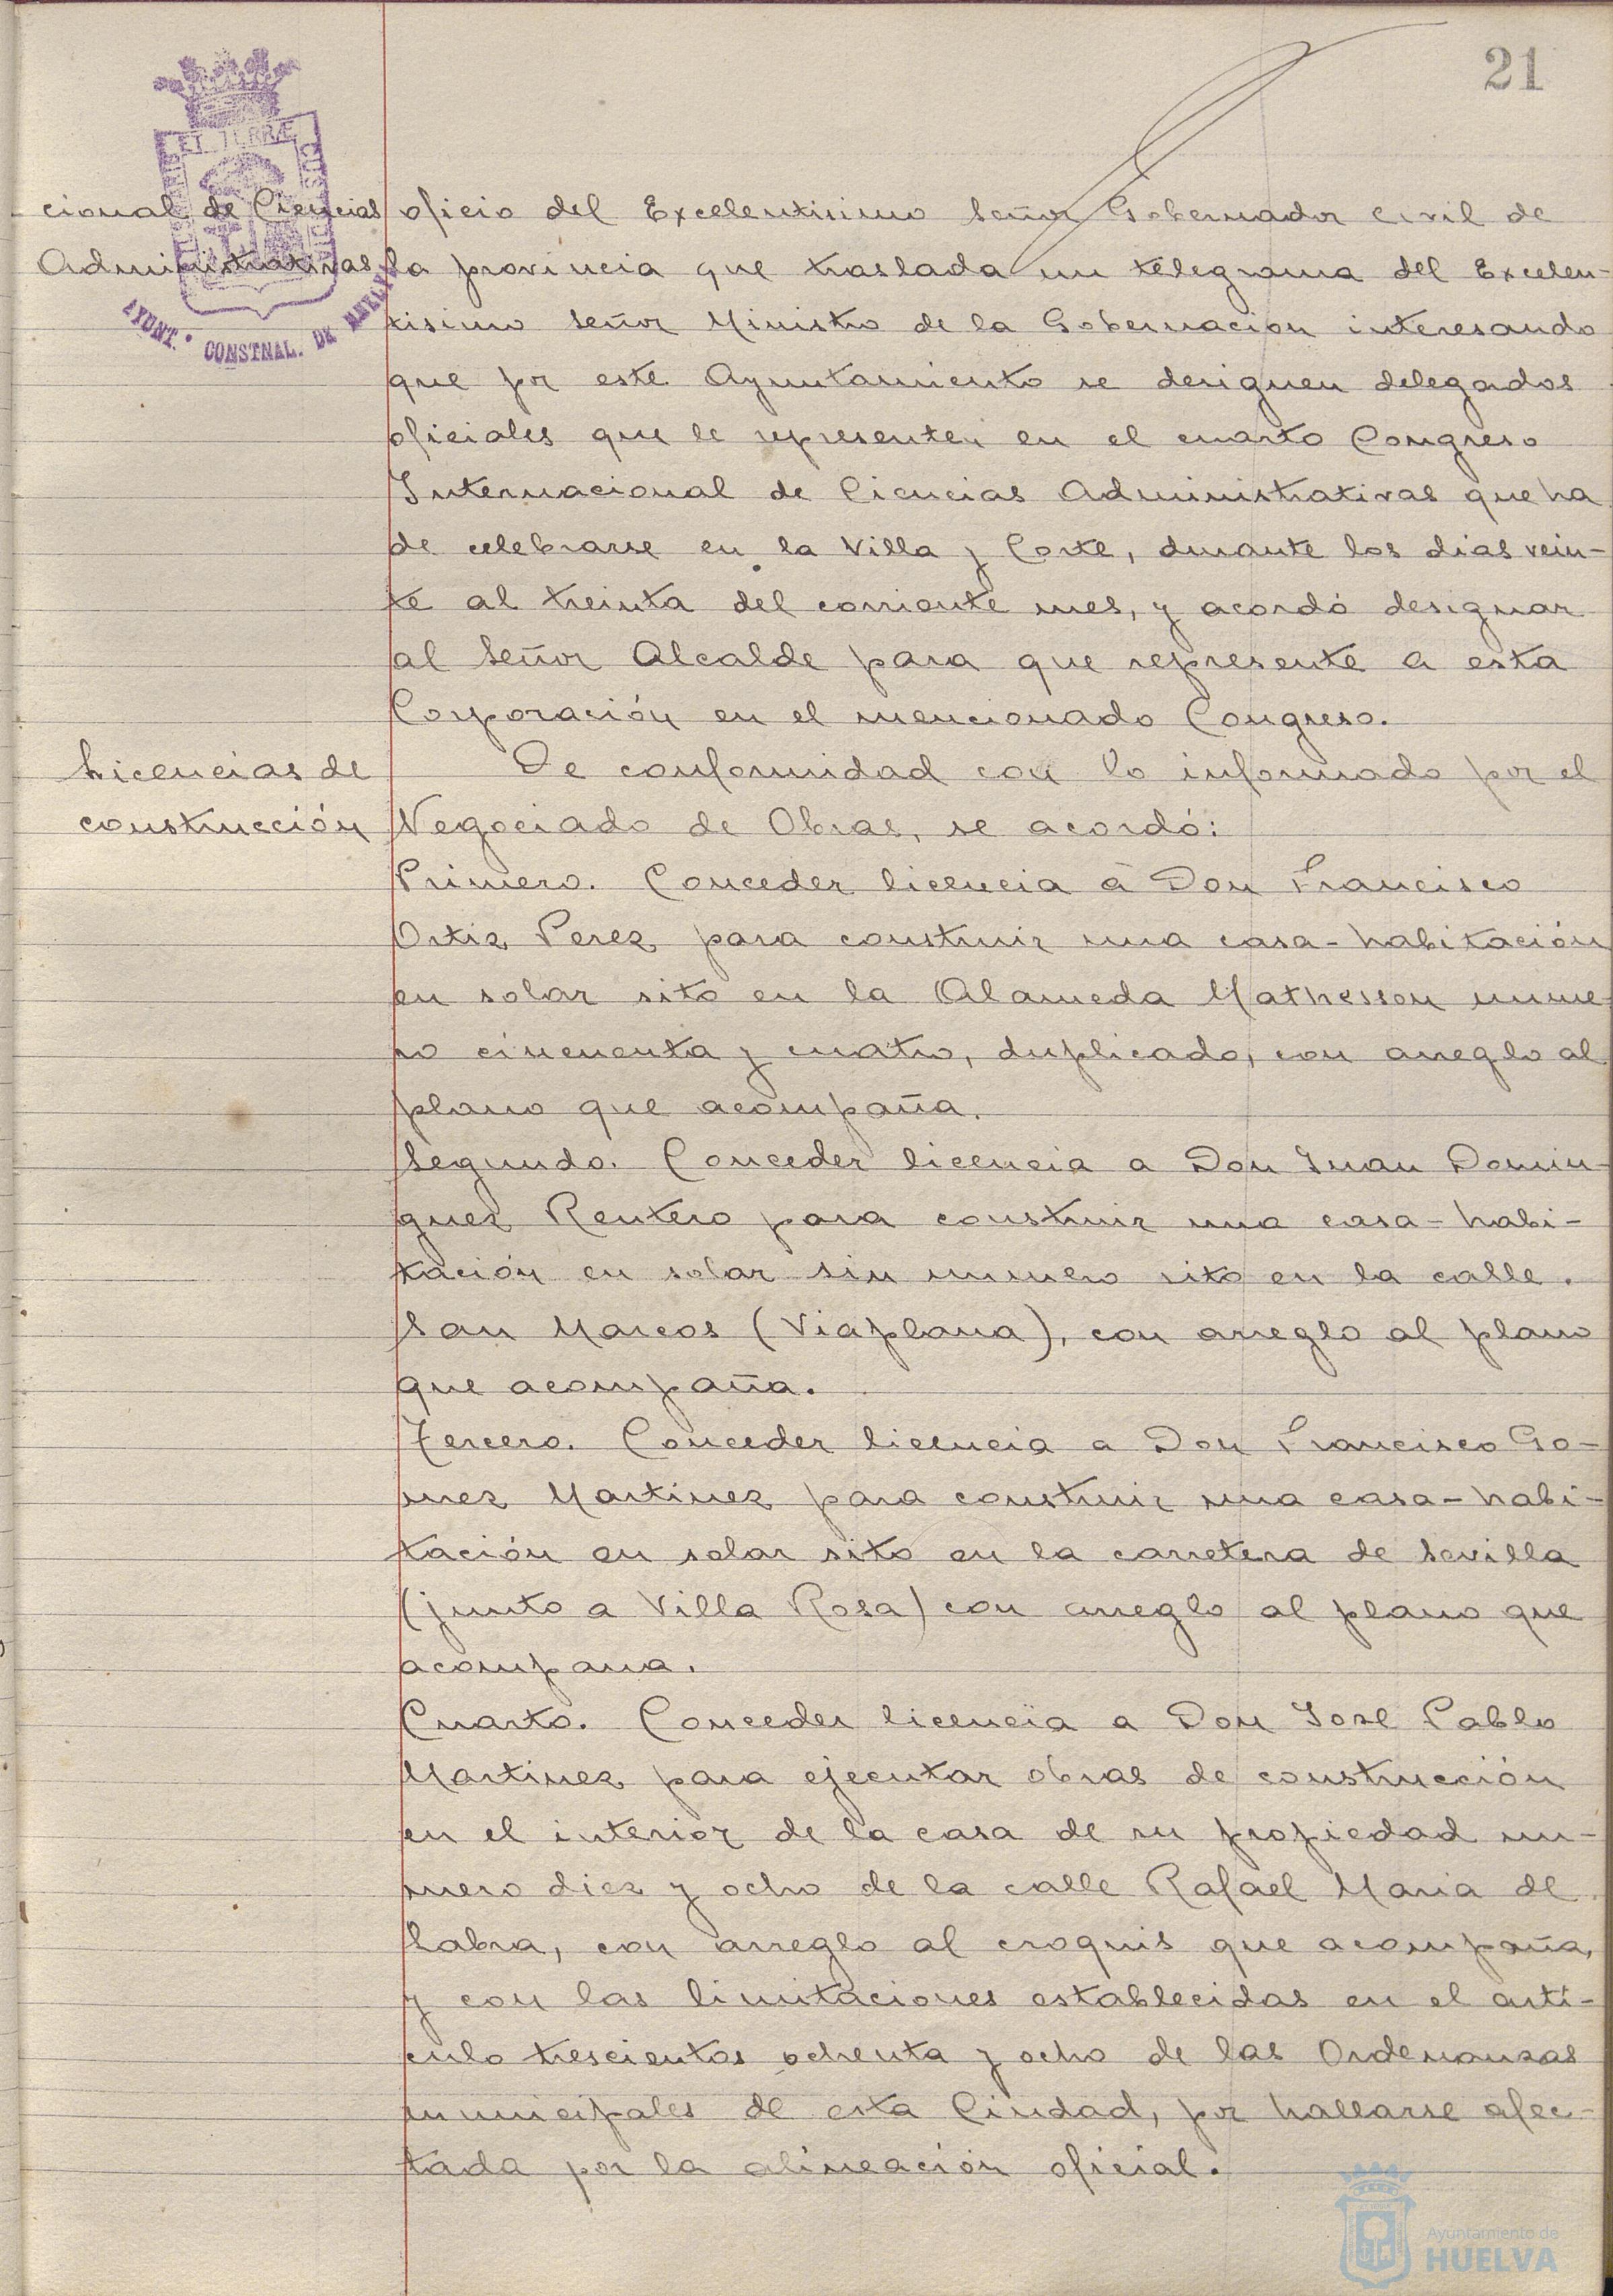 21
cional de Ciencias
Administrativas
oficio del Excelentisimo Señor Gobernador civil de
la provincia que traslada un telegrama del Excelen-
tisimo Señor Ministro de la Gobernación interesando
que por este Ayuntamiento se designen delegados
oficiales que le representen en el cuarto Congreso
Internacional de Ciencias Administrativas que ha
de celebrarse en la Villa y Corte, durante los dias vein-
te al treinta del corriente mes, y acordó designar
al Señor Alcalde para que represente a esta
Corporación en el mencionado Congreso.
Licencias de
construcción
De conformidad con lo informado por el
Negociado de Obras, se acordó:
Primero. Conceder licencia a Don Francisco
Ortiz Perez para construir una casa-habitación
en solar sito en la Alameda Mathesson nume-
ro cincuenta y cuatro, duplicado, con arreglo al
plano que acompaña.
Segundo. Conceder licencia a Don Juan Domin-
guez Rentero para construir una casa-habi-
tación en solar sin numero sito en la calle.
San Marcos (Viaplana), con arreglo al plano
que acompaña.
Tercero. Conceder licencia a Don Francisco Go-
mez Martinez para construir una casa-habi-
tación en solar sito en la carretera de Sevilla
(junto a Villa Rosa) con arreglo al plano que
acompana.
Cuarto. Conceder licencia a Don Jose Pablo
Martinez para ejecutar obras de construcción
en el interior de la casa de su propiedad nu-
mero diez y ocho de la calle Rafael Maria de
Labra, con arreglo al croquis que acompaña,
y con las limitaciones establecidas en el artí-
culo trescientos ochenta y ocho de las Ordenanzas
municipales de esta Ciudad, por hallarse afec-
tada por la alineación oficial.
ET TERRÆ
AYUNT. CONSTNAL. DE HUELVA
Ayuntamiento de
HUELVA